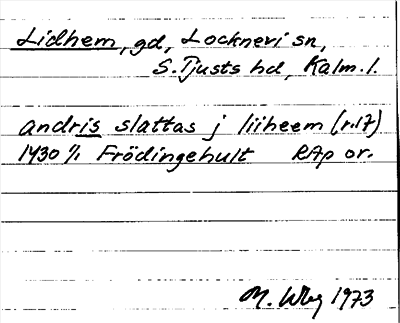 Lidhem, gd, Lockneri sn,
S. Tjusts hd, Kalm. l.
andris slattas j liiheem (r.17)
1430 7/1 Frödingehult RAp or.
M. Wbg 1973